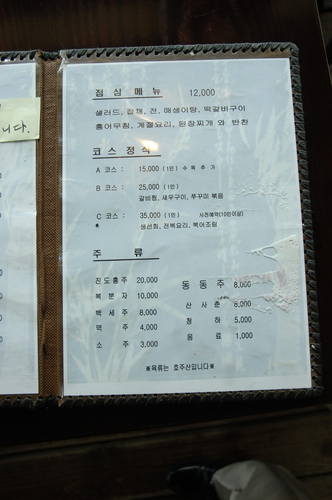 니다.
점심 메뉴 12,000
샐러드, 잡채, 전, 매생이탕, 떡갈비구이
홍어무침, 계절요리, 된장찌개 와 반찬
코스 정식
A 코스 : 15,000 (1인) 수육 추가
B 코스 : 25,000 (1인)
갈비찜, 새우구이, 쭈꾸미 볶음
C 코스 : 35,000 (1인) 사전예약(10인이상)
생선회, 전복요리, 북어조림
주 류
진도홍주 20,000 동동주 8,000
복분자 10,000 산사춘 8,000
백세주 8,000 청하 5,000
맥주 4,000 음료 1,000
소주 3,000
※육류는 호주산입니다※